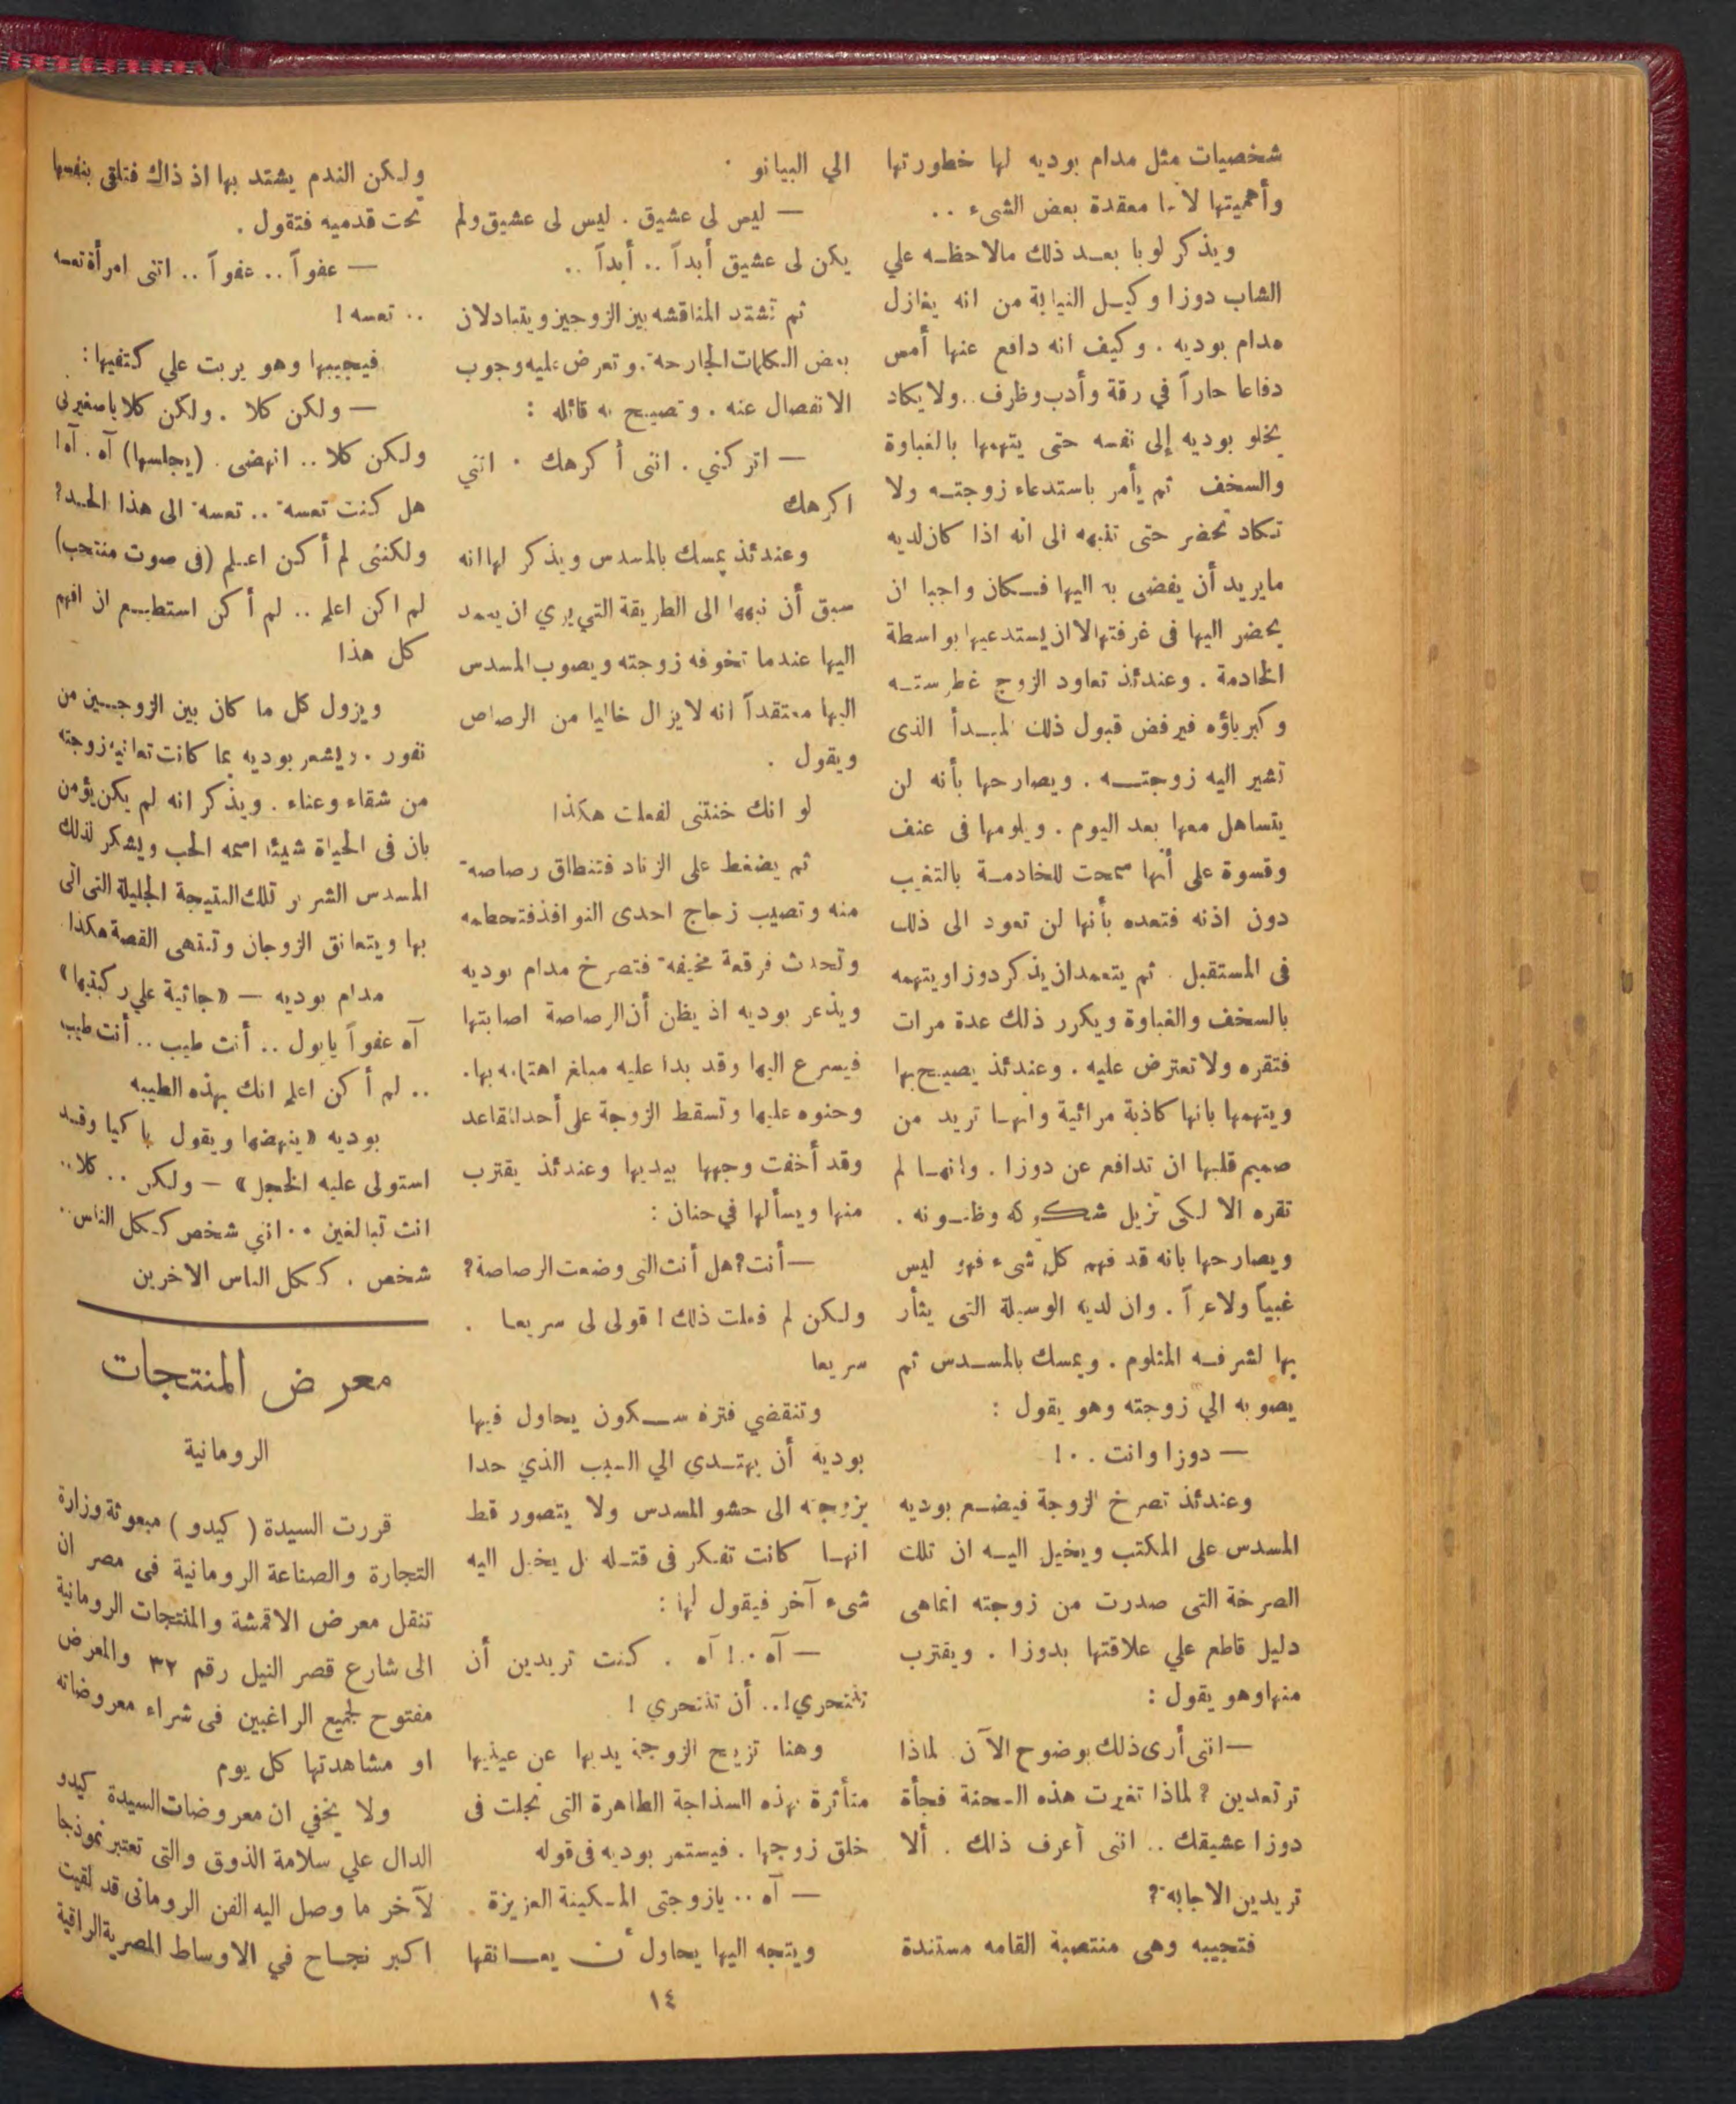 شخصيات مثل مدام بوديه لها خطورتها
وأهميتها لأنها معقدة بعض الشىء ..
ويذكر لوبا بعد ذلك مالاحظه علي
الشاب دوزا وكيل النيابة من انه يغازل
مدام بوديه . وكيف انه دافع عنها أمس
دفاعا حاراً في رقة وأدب وظرف .. ولا يكاد
يخلو بوديه إلى نفسه حتى يتهمها بالغباوة
والسخف ثم يأمر باستدعاء زوجته ولا
تكاد تحضر حتى تنبهه الى انه اذا كان لديه
مايريد أن يفضى به اليها فكان واجبا ان
يحضر اليها فى غرفتها لا ان يستدعيها بواسطة
الخادمة . وعندئذ تعاود الزوج غطرسته
وكبرياؤه فيرفض قبول ذلك المبدأ الذى
تشير اليه زوجته . ويصارحها بأنه لن
يتساهل معها بعد اليوم . ويلومها فى عنف
وقسوة على أنها سمحت للخادمة بالتغيب
دون اذنه فتعده بأنها لن تعود الى ذلك
فى المستقبل . ثم يتعمد ان يذكر دوزا ويتهمه
بالسخف والغباوة ويكرر ذلك عدة مرات
فتقره ولا تعترض عليه . وعندئذ يصيح بها
ويتهمها بانها كاذبة مرائية وانها تريد من
صميم قلبها ان تدافع عن دوزا . وانها لم
تقره الا لكى تزيل شكوكه وظنونه .
ويصارحها بانه قد فهم كل شىء فهو ليس
غبياً ولا غراً . وان لديه الوسيلة التى يثأر
بها لشرفه المثلوم . ويمسك بالمسدس ثم
يصوبه الي زوجته وهو يقول :
— دوزا وانت .. !
وعندئذ تصرخ الزوجة فيضع بوديه
المسدس على المكتب ويخيل اليه ان تلك
الصرخة التى صدرت من زوجته انماهى
دليل قاطع علي علاقتها بدوزا . ويقترب
منها وهو يقول :
— اننى أرى ذلك بوضوح الآن . لماذا
ترتعدين ؟ لماذا تغيرت هذه السحنة فجأة
دوزا عشيقك .. اننى أعرف ذلك . ألا
تريدين الاجابة ؟
فتجيبه وهى منتصبة القامه مستندة
الي البيانو .
— ليس لى عشيق . ليس لى عشيق ولم
يكن لى عشيق أبداً .. أبداً ..
ثم تشتد المناقشه بين الزوجين ويتبادلان
بعض الكلمات الجارحة . وتعرض عليه وجوب
الانفصال عنه . وتصيح به قائله :
— اتركني . اننى أكرهك . اننى
اكرهك
وعندئذ يمسك بالمسدس ويذكر لها انه
سبق أن نبهها الى الطريقة التي يري ان يعمد
اليها عندما تخوفه زوجته ويصوب المسدس
اليها معتقداً انه لايزال خاليا من الرصاص
ويقول .
لو انك خنتنى لفعلت هكذا
ثم يضغط على الزناد فتنطلق رصاصة
منه وتصيب زجاج احدى النوافذ فتحطمه
وتحدث فرقعة مخيفة فتصرخ مدام بوديه
ويذعر بوديه اذ يظن أن الرصاصة اصابتها
فيسرع اليها وقد بدا عليه مبلغ اهتمامه بها .
وحنوه عليها وتسقط الزوجة على أحد المقاعد
وقد أخفت وجهها بيديها وعندئذ يقترب
منها ويسألها في حنان :
— أنت ؟ هل أنت التى وضعت الرصاصة ؟
ولكن لم فعلت ذلك ! قولى لى سريعا .
سريعا
وتنقضي فترة سكون يحاول فيها
بوديه أن يهتدي الي السبب الذي حدا
بزوجته الى حشو المسدس ولا يتصور قط
انها كانت تفكر فى قتله بل يخيل اليه
شىء آخر فيقول لها :
— آه .. ! آه . كنت تريدين أن
تنتحري ! .. أن تنتحري !
وهنا تزيح الزوجة يديها عن عينيها
متأثرة بهذه السذاجة الطاهرة التى تجلت فى
خلق زوجها . فيستمر بوديه فى قوله
— آه .. يازوجتى المسكينة العزيزة .
ويتجه اليها يحاول أن يعانقها
ولكن الندم يشتد بها اذ ذاك فتلقى بنفسها
تحت قدميه فتقول .
— عفواً .. عفواً .. اننى امرأة تعسه
.. تعسه !
فيجيبها وهو يربت علي كتفيها :
— ولكن كلا . ولكن كلا ياصغيرتى
ولكن كلا .. انهضى . (يجلسها) آه . آه !
هل كنت تعسة .. تعسة الى هذا الحد ؟
ولكننى لم أكن اعلم (فى صوت منتحب)
لم اكن اعلم .. لم أكن استطيع ان افهم
كل هذا
ويزول كل ما كان بين الزوجين من
نفور . ويشعر بوديه بما كانت تعانيه زوجته
من شقاء وعناء . ويذكر انه لم يكن يؤمن
بان فى الحياة شيئا اسمه الحب ويشكر لذلك
المسدس الشرير تلك النتيجة الجليلة التى اتى
بها ويتعانق الزوجان وتنتهى القصة هكذا
مدام بوديه — «جاثية علي ركبتيها»
آه عفواً يابول .. أنت طيب .. أنت طيب
.. لم أكن اعلم انك بهذه الطيبه
بوديه «ينهضها ويقول باكيا وقد
استولى عليه الخجل» — ولكن .. كلا ..
انت تبالغين .. اننى شخص ككل الناس ..
شخص . ككل الناس الاخرين
معرض المنتجات
الرومانية
قررت السيدة ( كيدو ) مبعوثة وزارة
التجارة والصناعة الرومانية فى مصر ان
تنقل معرض الاقمشة والمنتجات الرومانية
الى شارع قصر النيل رقم ٣٢ والمعرض
مفتوح لجميع الراغبين فى شراء معروضاته
او مشاهدتها كل يوم
ولا يخفي ان معروضات السيدة كيدو
الدال علي سلامة الذوق والتى تعتبر نموذجا
لآخر ما وصل اليه الفن الرومانى قد لقيت
اكبر نجاح في الاوساط المصرية الراقية
١٤